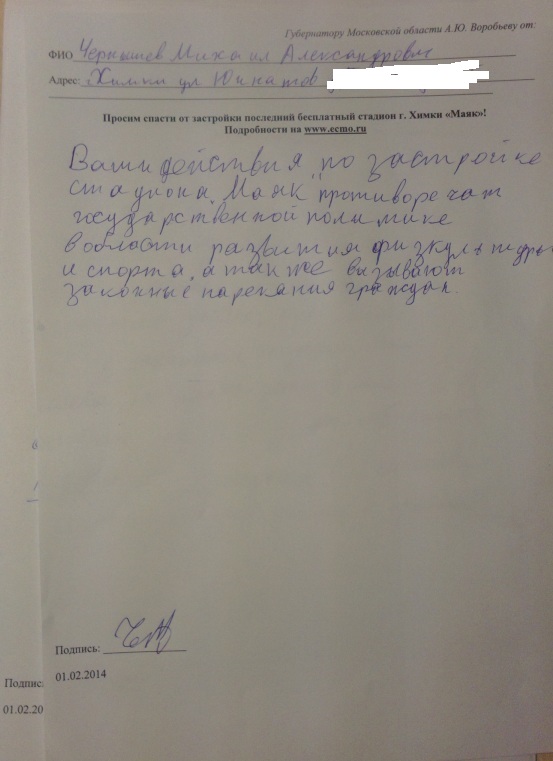 Губернатору Московской области А.Ю. Воробьеву от:
ФИО Чернышев Михаил Александрович
Адрес: г. Химки ул Юннатов
Просим спасти от застройки последний бесплатный стадион г. Химки «Маяк»!
Подробности на www.ecmo.ru
Ваши действия по застройке
стадиона "Маяк" противоречат
государственной политике
в области развития физкультуры
и спорта, а также вызывают
законные нарекания граждан.
Подпись:
01.02.2014
Подпис
01.02.20